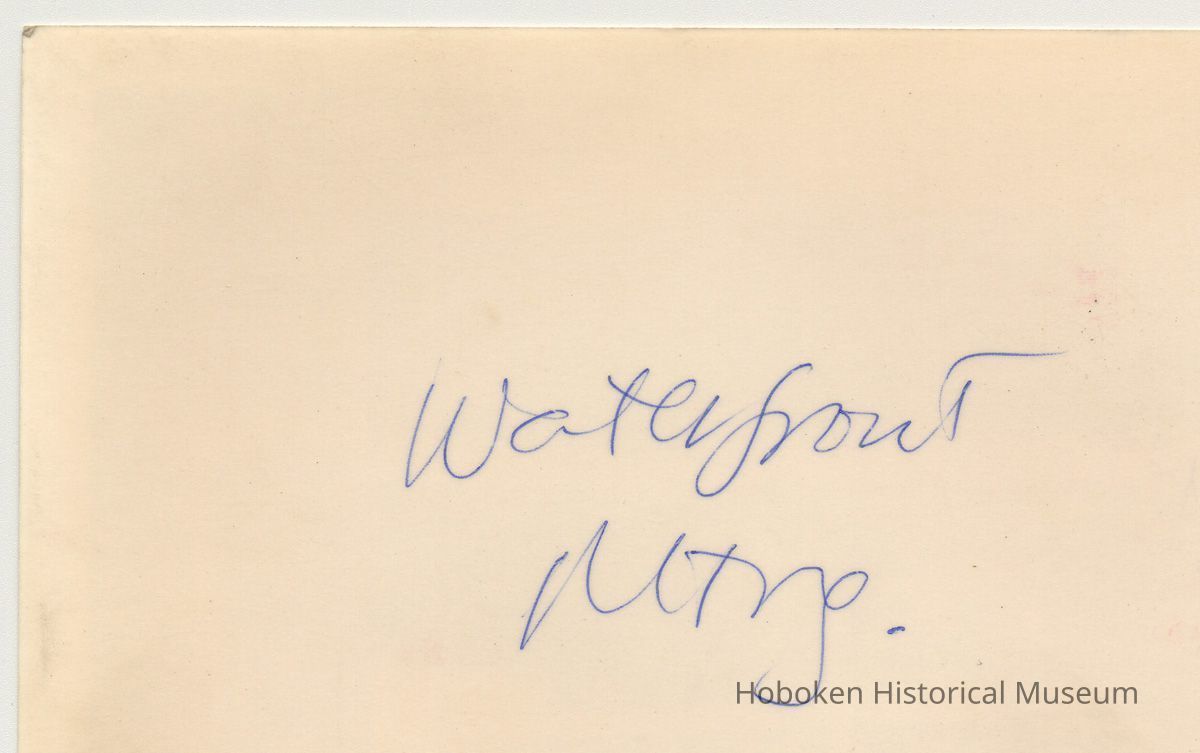 Waterfront
Mtng.
Hoboken Historical Museum